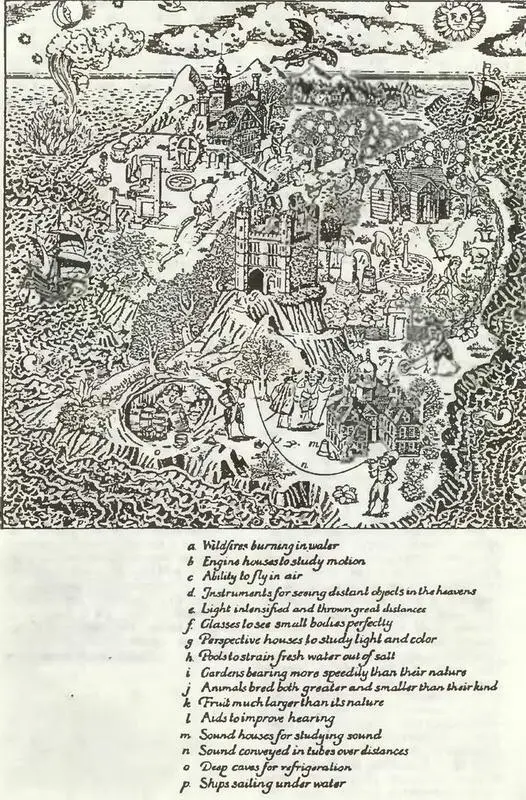 m
n
p.
a Wildfires burning in water
b Engine houses to study motion
c Ability to fly in air
d. Instruments for seeing distant objects in the heavens
e. Light intensified and thrown great distances
f. Glasses to see small bodies perfectly
g Perspective houses to study light and color
h. Pools to strain fresh water out of salt
i Gardens bearing more speedily than their nature
j Animals bred both greater and smaller than their kind
k Fruit much larger than its nature
l Aids to improve hearing
m Sound houses for studying sound
n Sound conveyed in tubes over distances
o Deep caves for refrigeration
p. Ships sailing under water